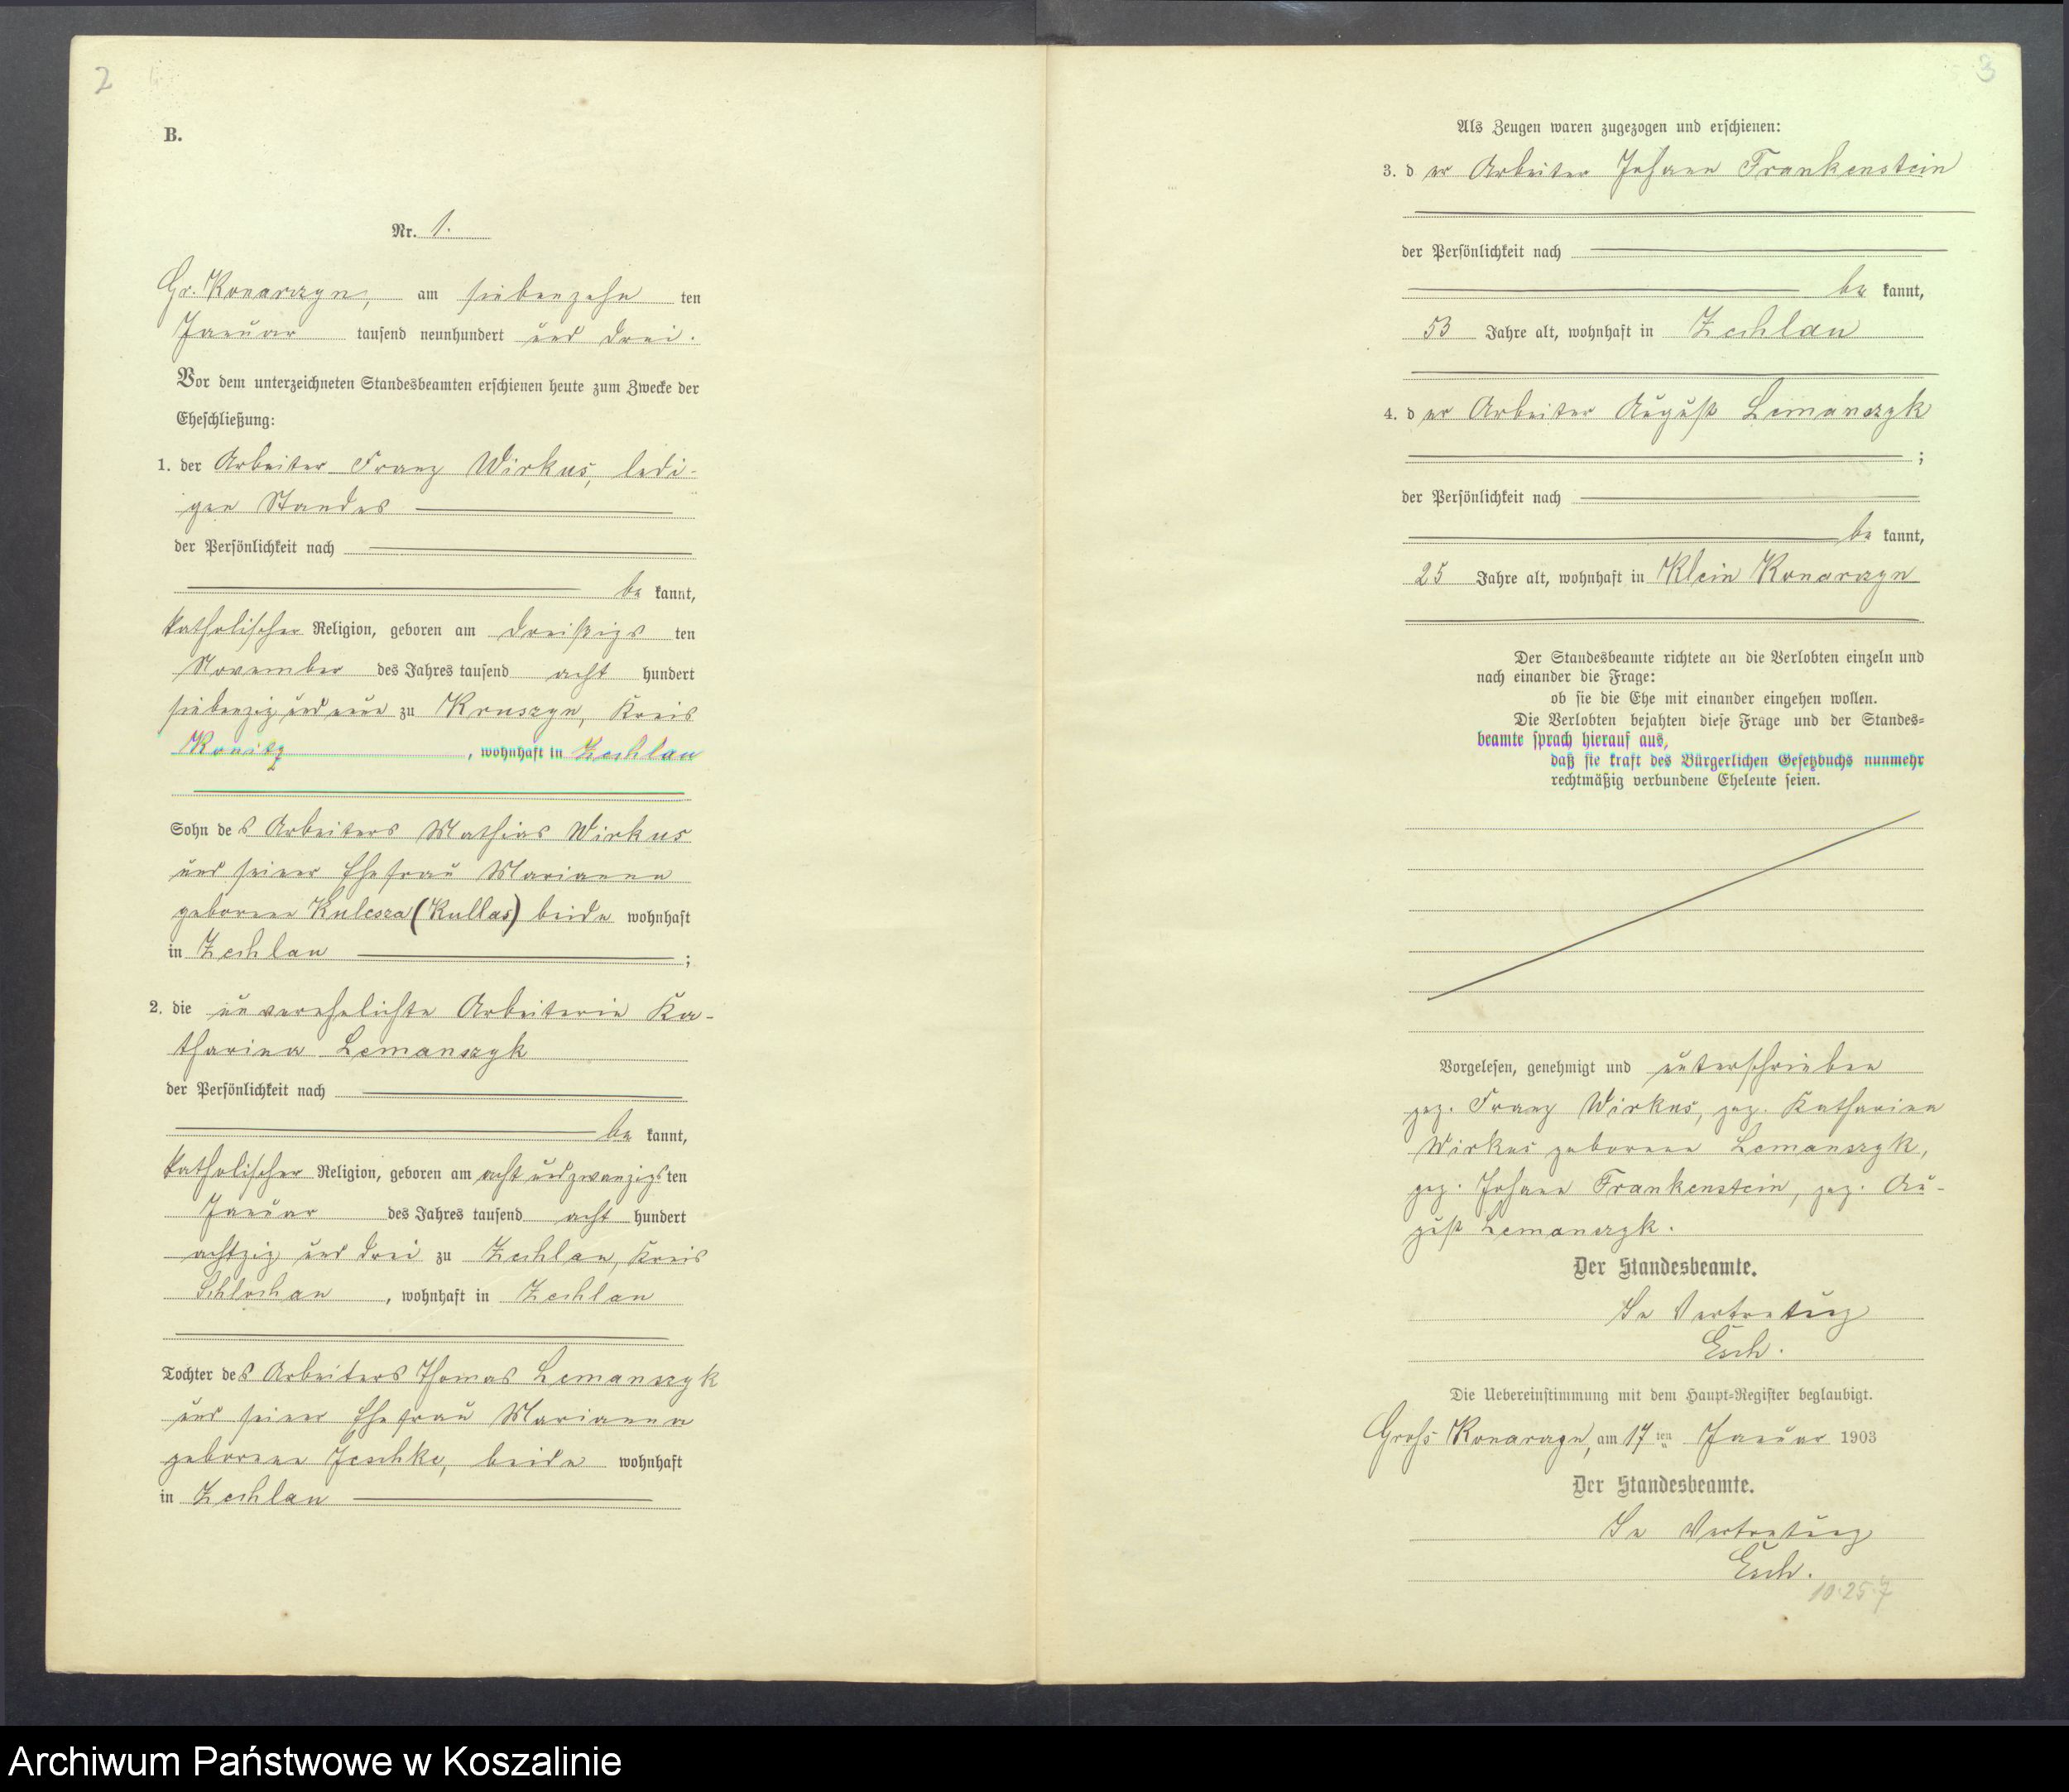 2
B.
Nr. 1.
Gr. Konarzyn, am siebenzehn ten
Januar tausend neunhundert und drei.
Vor dem unterzeichneten Standesbeamten erschienen heute zum Zwecke der
Eheschließung:
1. der Arbeiter Franz Wirkus, ledi-
gen Standes
der Persönlichkeit nach
be kannt,
katholischer Religion, geboren am dreißigs ten
November des Jahres tausend acht hundert
siebenzig und neun zu Kruszyn, Kreis
Konitz, wohnhaft in Zechlau
Sohn des Arbeiters Mathias Wirkus
und seiner Ehefrau Marianna
geborene Kulesza (Kullas) beide wohnhaft
in Zechlau ;
2. die unverehelichte Arbeiterin Ka-
tharina Lemanczyk
der Persönlichkeit nach
be kannt,
katholischer Religion, geboren am acht und zwanzigs ten
Januar des Jahres tausend acht hundert
achtzig und drei zu Zechlau, Kreis
Schlochau, wohnhaft in Zechlau
Tochter des Arbeiters Thomas Lemanczyk
und seiner Ehefrau Marianna
geborene Jeschke, beide wohnhaft
in Zechlau
3
Als Zeugen waren zugezogen und erschienen:
3. der Arbeiter Johann Frankenstein
der Persönlichkeit nach
be kannt,
53 Jahre alt, wohnhaft in Zechlau
4. der Arbeiter August Lemanczyk
;
der Persönlichkeit nach
be kannt,
25 Jahre alt, wohnhaft in Klein Konarzyn
Der Standesbeamte richtete an die Verlobten einzeln und
nach einander die Frage:
ob sie die Ehe mit einander eingehen wollen.
Die Verlobten bejahten diese Frage und der Standes=
beamte sprach hierauf aus,
daß sie kraft des Bürgerlichen Gesetzbuchs nunmehr
rechtmäßig verbundene Eheleute seien.
Vorgelesen, genehmigt und unterschrieben
gez. Franz Wirkus, gez. Katharina
Wirkus geborene Lemanczyk,
gez. Johann Frankenstein, gez. Au-
gust Lemanczyk.
Der Standesbeamte.
In Vertretung
Esch.
Die Uebereinstimmung mit dem Haupt=Register beglaubigt.
Gross Konarzyn, am 17 ten Januar 1903
Der Standesbeamte.
In Vertretung
Esch.
10.25.7
Archiwum Państwowe w Koszalinie